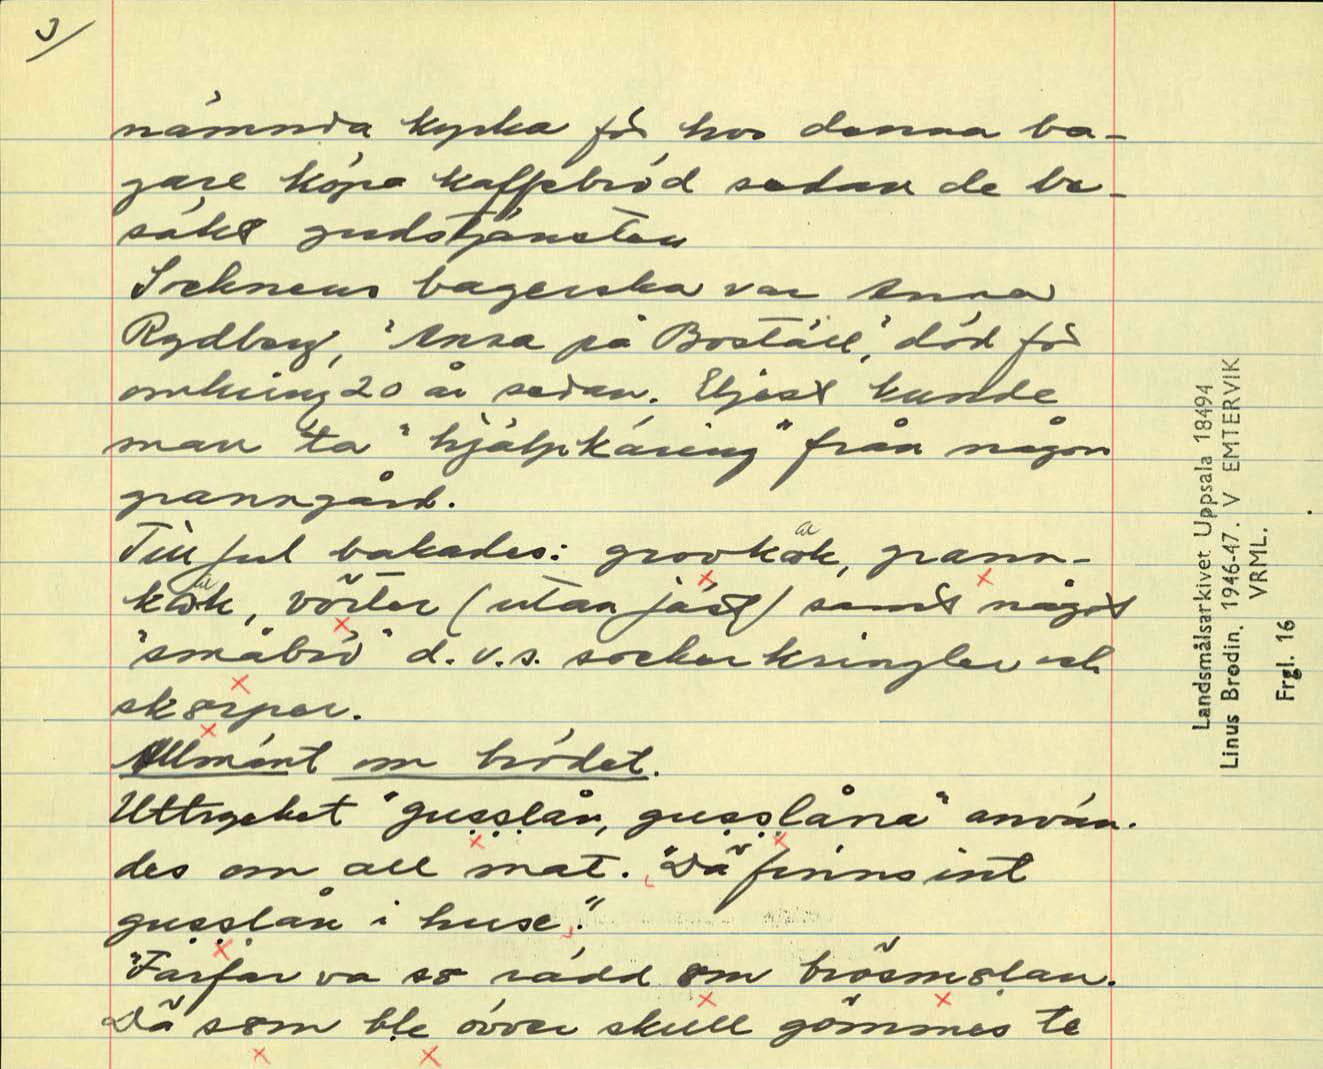 3/
nämnda kyrka för hos denna ba-
gare köpa kaffebröd sedan de be-
sökt gudstjänsten
Socknens bagerska var Anna
Rydberg, "Anna på Boställ", död för
omkring 20 år sedan. Eljest kunde
man ta "hjälpkäring" från någon
granngård.
Till jul bakades: grovkak, grann-
kak, vörter (utan jäst) samt något
"småbrö" d.v.s. sockerkringler och
skorper.
Allmänt om brödet.
Uttrycket "gusslån, gusslåna" använ-
des om all mat. "Dä finns int
gusslån i huse."
"Farfar va so rädd om brösmolan.
Dä som ble övver skull gömmes te
Landsmålsarkivet Uppsala 18494
Linus Brodin. 1946-47. V EMTERVIK
VRML.
Frgl. 16